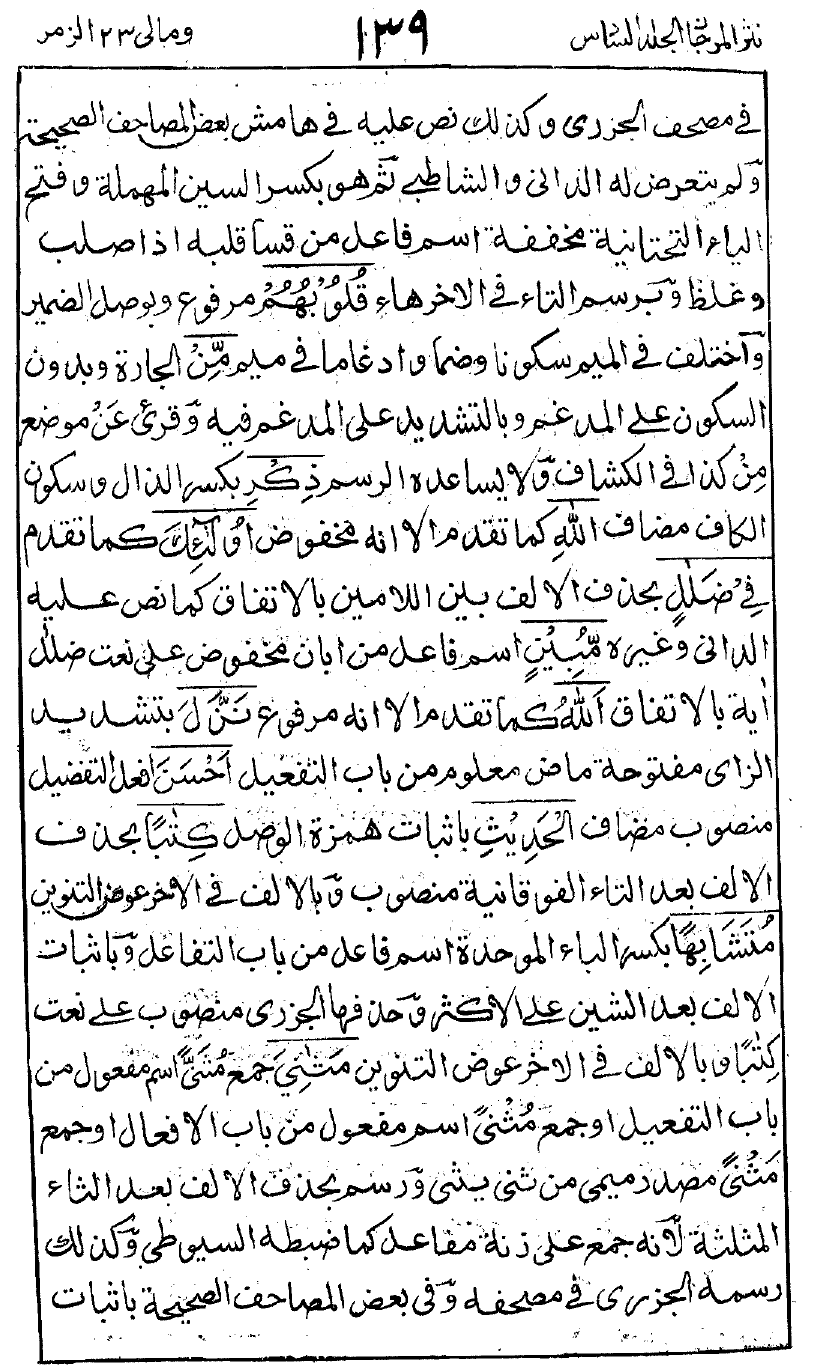 نثر المرجان الجلد السادس ١٣٩ ومالى ٢٣ الزمر
فى مصحف الجزرى وكذلك نص عليه فى هامش بعض المصاحف الصحيحة
وَلم يتعرض له الدانى والشاطبى ثم هو بكسر السين المهملة وفتح
الياء التحتانية مخففة اسم فاعل من قسا قلبه اذا صلب
وغلظ وَبرسم التاء فى الاخر هاء قُلُوْبُهُمْ مرفوع وبوصل الضمير
وَاختلف فى الميم سكونا وضما وادغاما فى ميم مِّنْ الجارة وبدون
السكون على المدغم وبالتشديد على المدغم فيه وَقرئ عَنْ موضع
مِنْ كذا فى الكشاف وَلا يساعده الرسم ذِكْرِ بكسر الذال وسكون
الكاف مضاف اللهِ كما تقدم الا انه مخفوض اُولٰٓئِكَ كما تقدم
فِىْ ضَلٰلٍ بحذف الالف بين اللامين بالاتفاق كما نص عليه
الدانى وغيره مُّبِيْنٍ اسم فاعل من ابان مخفوض على نعت ضلٰل
اٰية بالاتفاق اَللهُ كما تقدم الا انه مرفوع نَزَّلَ بتشديد
الزاى مفتوحة ماض معلوم من باب التفعيل اَحْسَنَ افعل التفضيل
منصوب مضاف الْحَدِيْثِ باثبات همزة الوصل كِتٰبًا بحذف
الالف بعد التاء الفوقانية منصوب وَبالالف فى الاخر عوض التنوين
مُتَشَابِهًا بكسر الباء الموحدة اسم فاعل من باب التفاعل وَباثبات
الالف بعد الشين على الاكثر وَحذفها الجزرى منصوب على نعت
كِتٰبًا وبالالف فى الاخر عوض التنوين مَثٰنِىَ جمع مُثَنًّى اسم مفعول من
باب التفعيل اوجمع مُثْنًى اسم مفعول من باب الافعال اوجمع
مَثْنًى مصدر ميمى من ثنى يثنى وَرسم بحذف الالف بعد الثاء
المثلثة لَانه جمع على زنة مفاعل كما ضبطه السيوطى وَكذلك
رسمه الجزرى فى مصحفه وَفى بعض المصاحف الصحيحة باثبات